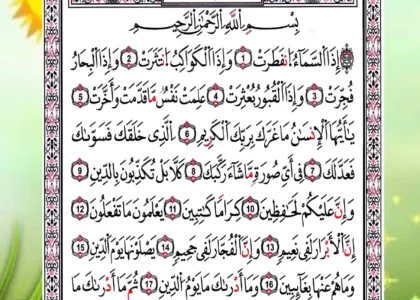 بِسْمِ اللَّهِ الرَّحْمَٰنِ الرَّحِيمِ
إِذَا السَّمَاءُ انفَطَرَتْ 1 وَإِذَا الْكَوَاكِبُ انتَثَرَتْ 2 وَإِذَا الْبِحَارُ
فُجِّرَتْ 3 وَإِذَا الْقُبُورُ بُعْثِرَتْ 4 عَلِمَتْ نَفْسٌ مَّا قَدَّمَتْ وَأَخَّرَتْ 5
يَٰأَيُّهَا الْإِنسَٰنُ مَا غَرَّكَ بِرَبِّكَ الْكَرِيمِ 6 الَّذِي خَلَقَكَ فَسَوَّىٰكَ
فَعَدَلَكَ 7 فِي أَيِّ صُورَةٍ مَّا شَاءَ رَكَّبَكَ 8 كَلَّا بَلْ تُكَذِّبُونَ بِالدِّينِ 9
وَإِنَّ عَلَيْكُمْ لَحَٰفِظِينَ 10 كِرَامًا كَٰتِبِينَ 11 يَعْلَمُونَ مَا تَفْعَلُونَ 12
إِنَّ الْأَبْرَارَ لَفِي نَعِيمٍ 13 وَإِنَّ الْفُجَّارَ لَفِي جَحِيمٍ 14 يَصْلَوْنَهَا يَوْمَ الدِّينِ 15
وَمَا هُمْ عَنْهَا بِغَائِبِينَ 16 وَمَا أَدْرَىٰكَ مَا يَوْمُ الدِّينِ 17 ثُمَّ مَا أَدْرَىٰكَ مَا